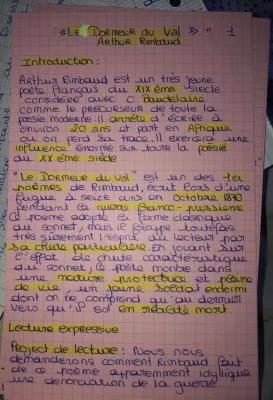 « Le Dormeur du Val » 1
Arthur Rimbaud
Introduction :
Arthur Rimbaud est un très jeune
poète français du XIXème siècle
considéré avec C. Baudelaire
comme le précurseur de toute la
poésie moderne. Il arrête d'écrire à
environ 20 ans et part en Afrique
où on perd sa trace. Il exercera une
influence énorme sur toute la poésie
du XXème siècle
"Le Dormeur du Val" est un des 1er
poèmes de Rimbaud, écrit lors d'une
fugue à seize ans en octobre 1870
pendant la guerre franco-prussienne
Ce poème adopte la forme classique
du sonnet, mais il frappe toutefois
très sûrement l'esprit du lecteur par
sa chute particulière. En jouant sur
l'effet de chute caractéristique
du sonnet, le poète montre dans
une nature protectrice et pleine
de vie, un jeune soldat endormi
dont on ne comprend qu'au dernier
vers qu'il est en réalité mort.
Lecture expressive
Project de lecture : Nous nous
demanderons comment Rimbaud fait
de ce poème apparemment idyllique
une dénonciation de la guerre